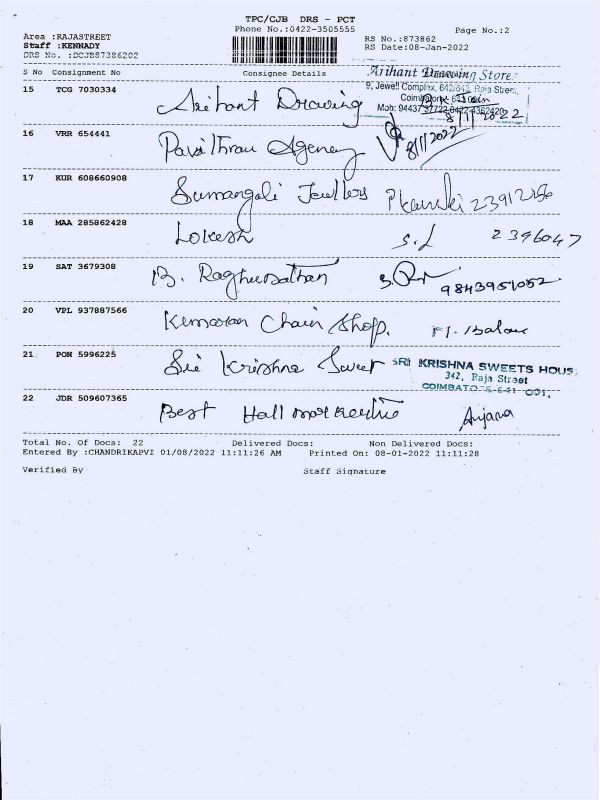 TPC/CJB DRS - PCT
Phone No.:0422-3505555
Page No.:2
Area :RAJASTREET
RS No.:873862
Staff :KENNADY
RS Date:08-Jan-2022
DRS No. :DCJB87386202
S No Consignment No Consignee Details
Arihant Drawing Store
15 TCG 7030334 Arihant Drawing
9, Jewell Complex, 642/643, Raja Street,
Coimbatore
Mob: 94437 37722
8/1/2022
16 VRR 654441 Pavithran Agency
8/1/2022
17 KUR 608660908 Sumangali Jewllers
18 MAA 285862428 Lokesh S.L 2396047
19 SAT 3679308 B. Raghunathan 9843951052
20 VPL 937887566 Kumaran Chain Shop.
21 PON 5996225 Sri Krishna Sweet
SRI KRISHNA SWEETS HOUS
342, Raja Street
COIMBATO
22 JDR 509607365 Best Hallmark Anjana
Total No. Of Docs: 22 Delivered Docs: Non Delivered Docs:
Entered By :CHANDRIKAPVI 01/08/2022 11:11:26 AM Printed On: 08-01-2022 11:11:28
Verified By Staff Signature